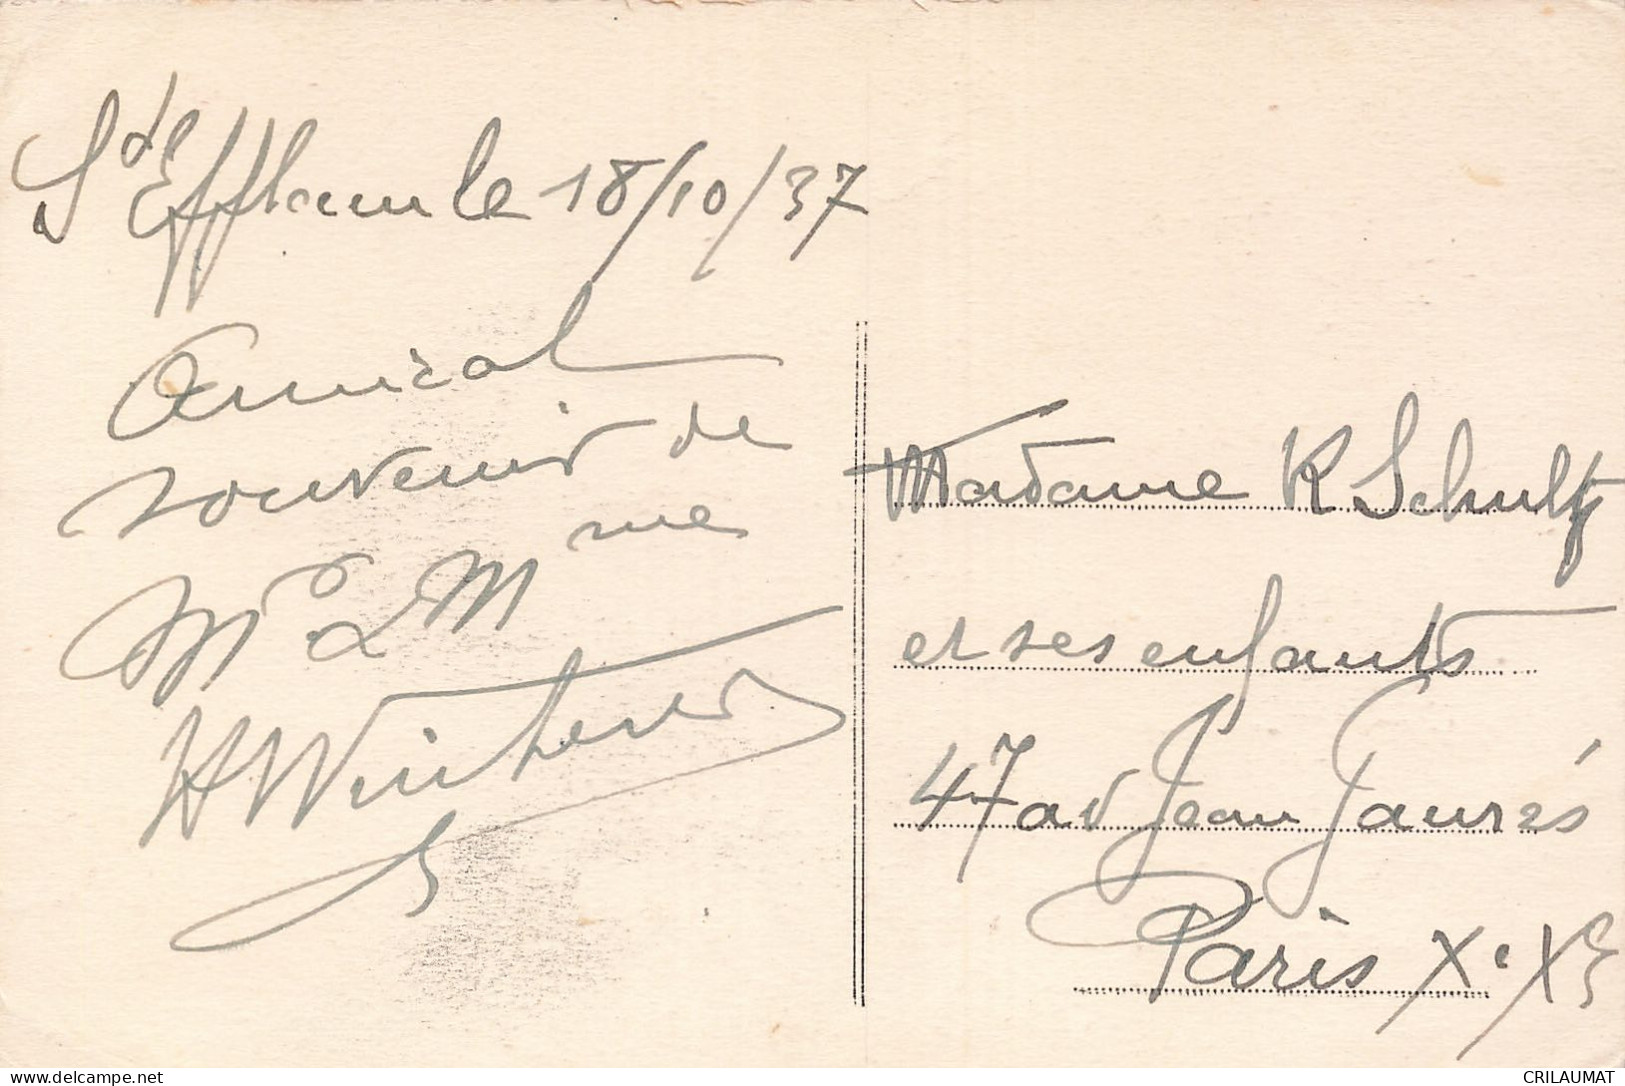 St Efflam le 18/10/37
Amical
souvenir de
Mr & Mme
Madame R Schultz
et ses enfants
47 av Jean Jaurés
Paris Xe XE
delcampe.net
CRILAUMAT